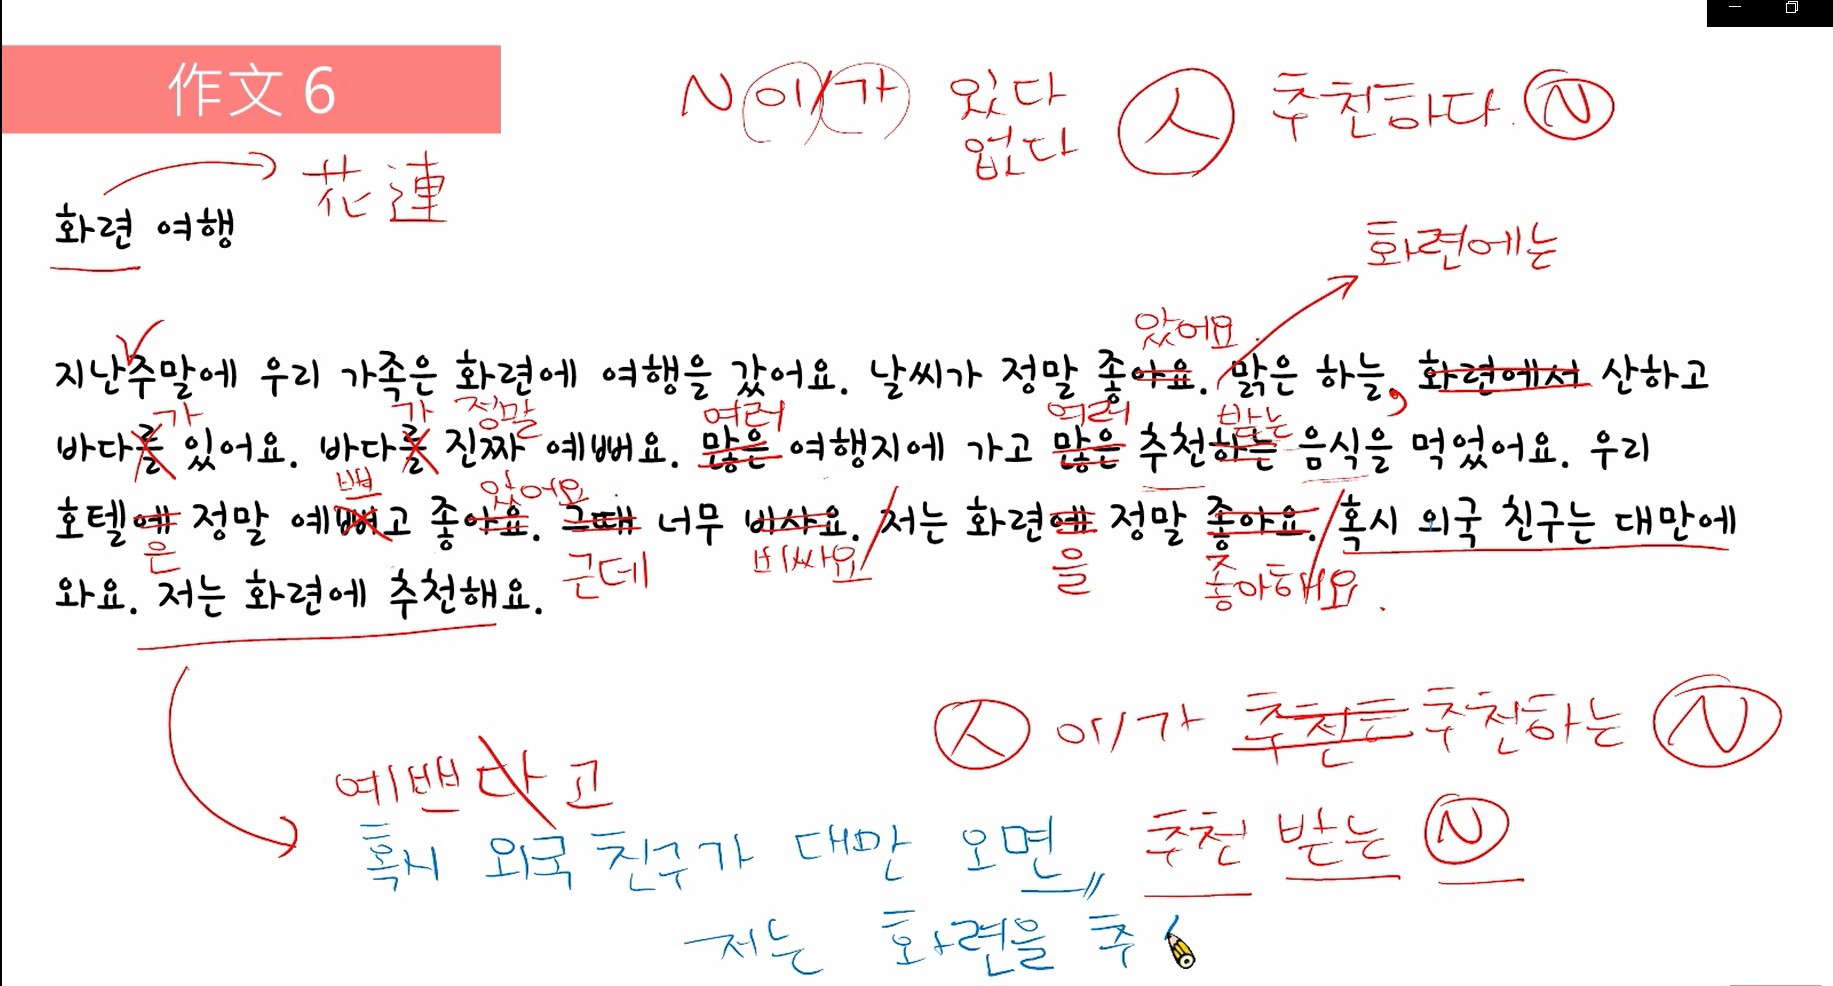 作文 6
N 이/가 있다
없다
人 추천하다. N
花連
화련 여행
화련에는
았어요.
지난주말에 우리 가족은 화련에 여행을 갔어요. 날씨가 정말 좋아요. 맑은 하늘, 화련에서 산하고
가 가 정말 여러 여러 받는
바다를 있어요. 바다를 진짜 예뻐요. 많은 여행지에 가고 많은 추천하는 음식을 먹었어요. 우리
쁘 았어요
호텔에 정말 예뻐고 좋아요. 그때 너무 비사요. 저는 화련에 정말 좋아요. 혹시 외국 친구는 대만에
은 근데 비싸요 을 좋아해요.
와요. 저는 화련에 추천해요.
人 이/가 추천하는 N
예쁘다고
혹시 외국 친구가 대만 오면
추천 받는 N
저는 화련을 추